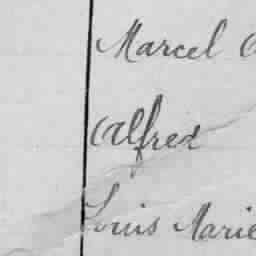 Marcel
Alfred
Louis Marie